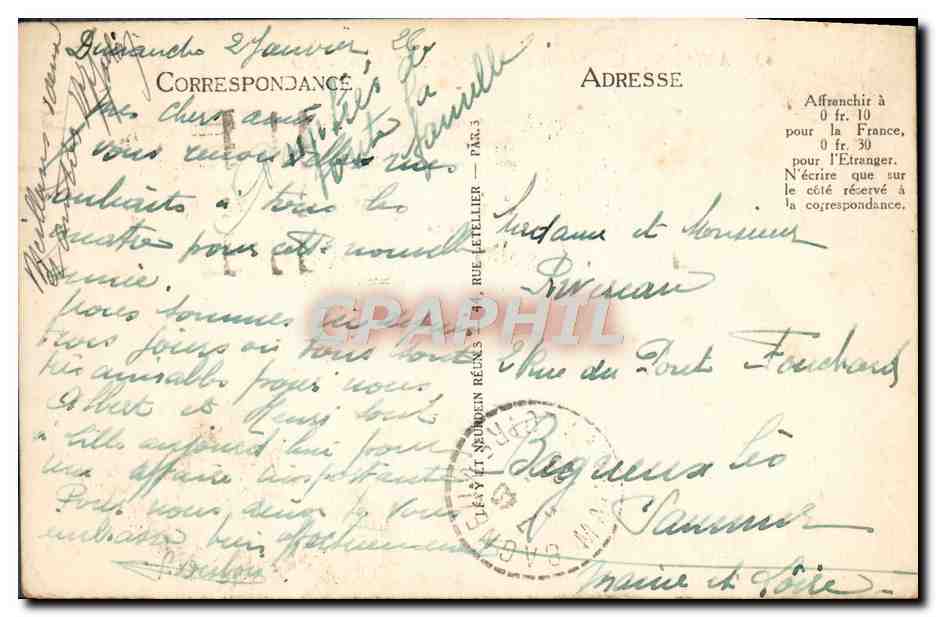 Dimanche 2 Janvier 26
CORRESPONDANCE
Mes chers amis
vous renouveller mes
souhaits à tous les
quatre pour cette nouvelle
année.
Nous sommes ici depuis
trois jours où tous sont
très aimables pour nous
Albert et Henri sont
à Lille aujourd'hui pour
une affaire importante
Pour nous deux je vous
embrasse bien affectueusement
Meilleurs
toute la
famille
LÉVY ET NEURDEIN RÉUNIS - 44, RUE LETELLIER - PARIS
CPARHIL
ADRESSE
Affranchir à
0 fr. 10
pour la France,
0 fr. 30
pour l'Etranger.
N'écrire que sur
le côté réservé à
la correspondance.
Madame et Monsieur
Rivineau
2 Rue du Pont Fouchard
Bagneux lès
Saumur
Maine et Loire